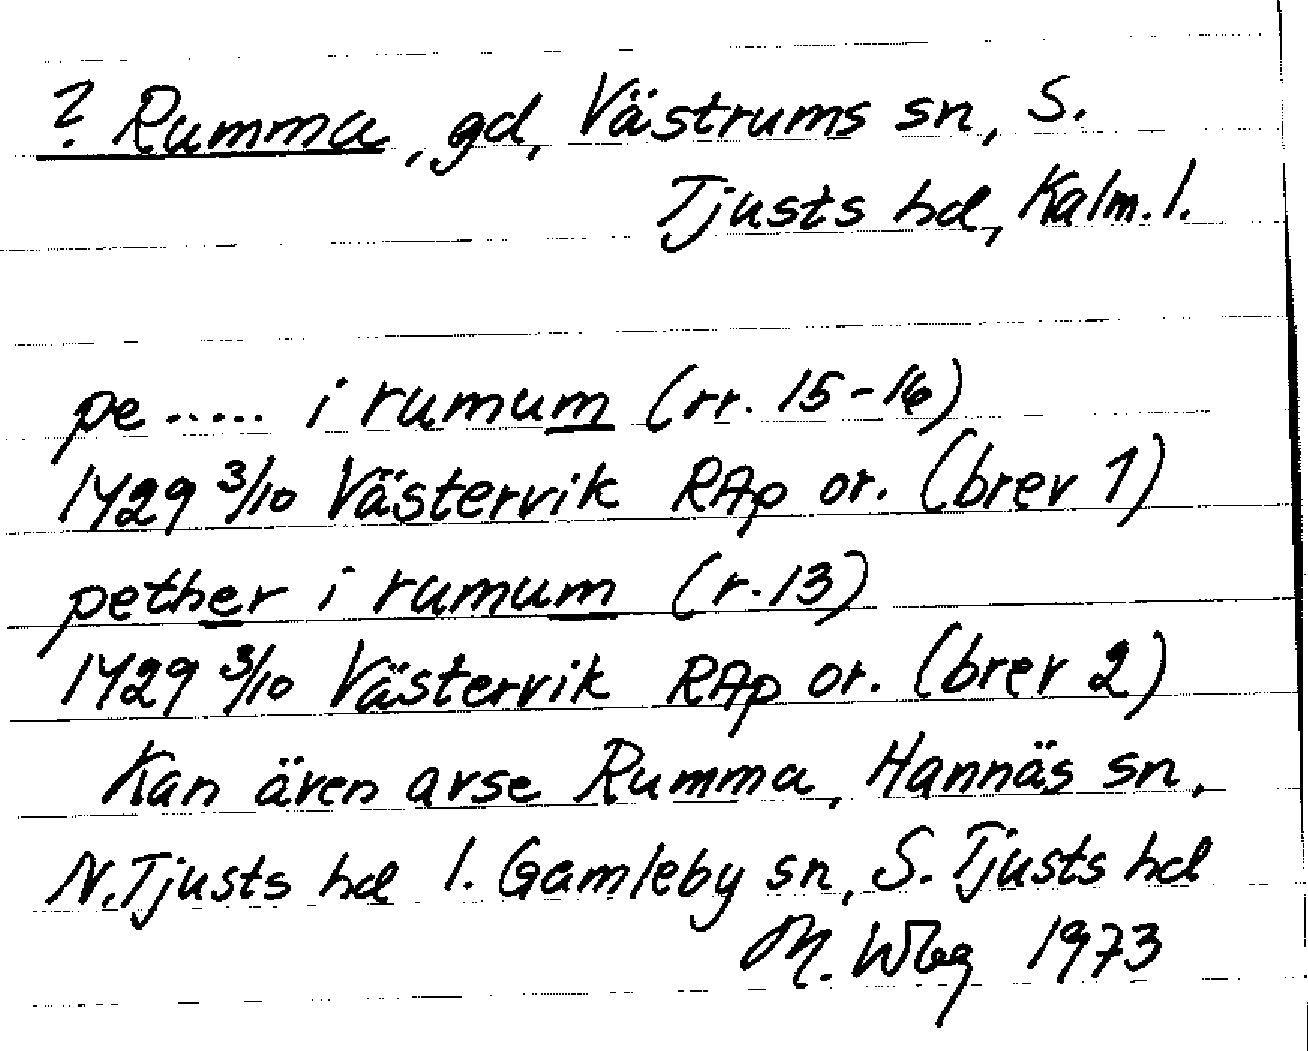 ? Rumma, gd, Västrums sn, S.
Tjusts hd, Kalm. l.
pe ..... i rumum (rr. 15-16)
1429 3/10 Västervik RAp or. (brev 1)
pether i rumum (r. 13)
1429 3/10 Västervik RAp or. (brev 2)
Kan även avse Rumma, Hannäs sn,
N. Tjusts hd l. Gamleby sn, S. Tjusts hd
M. Wbg 1973